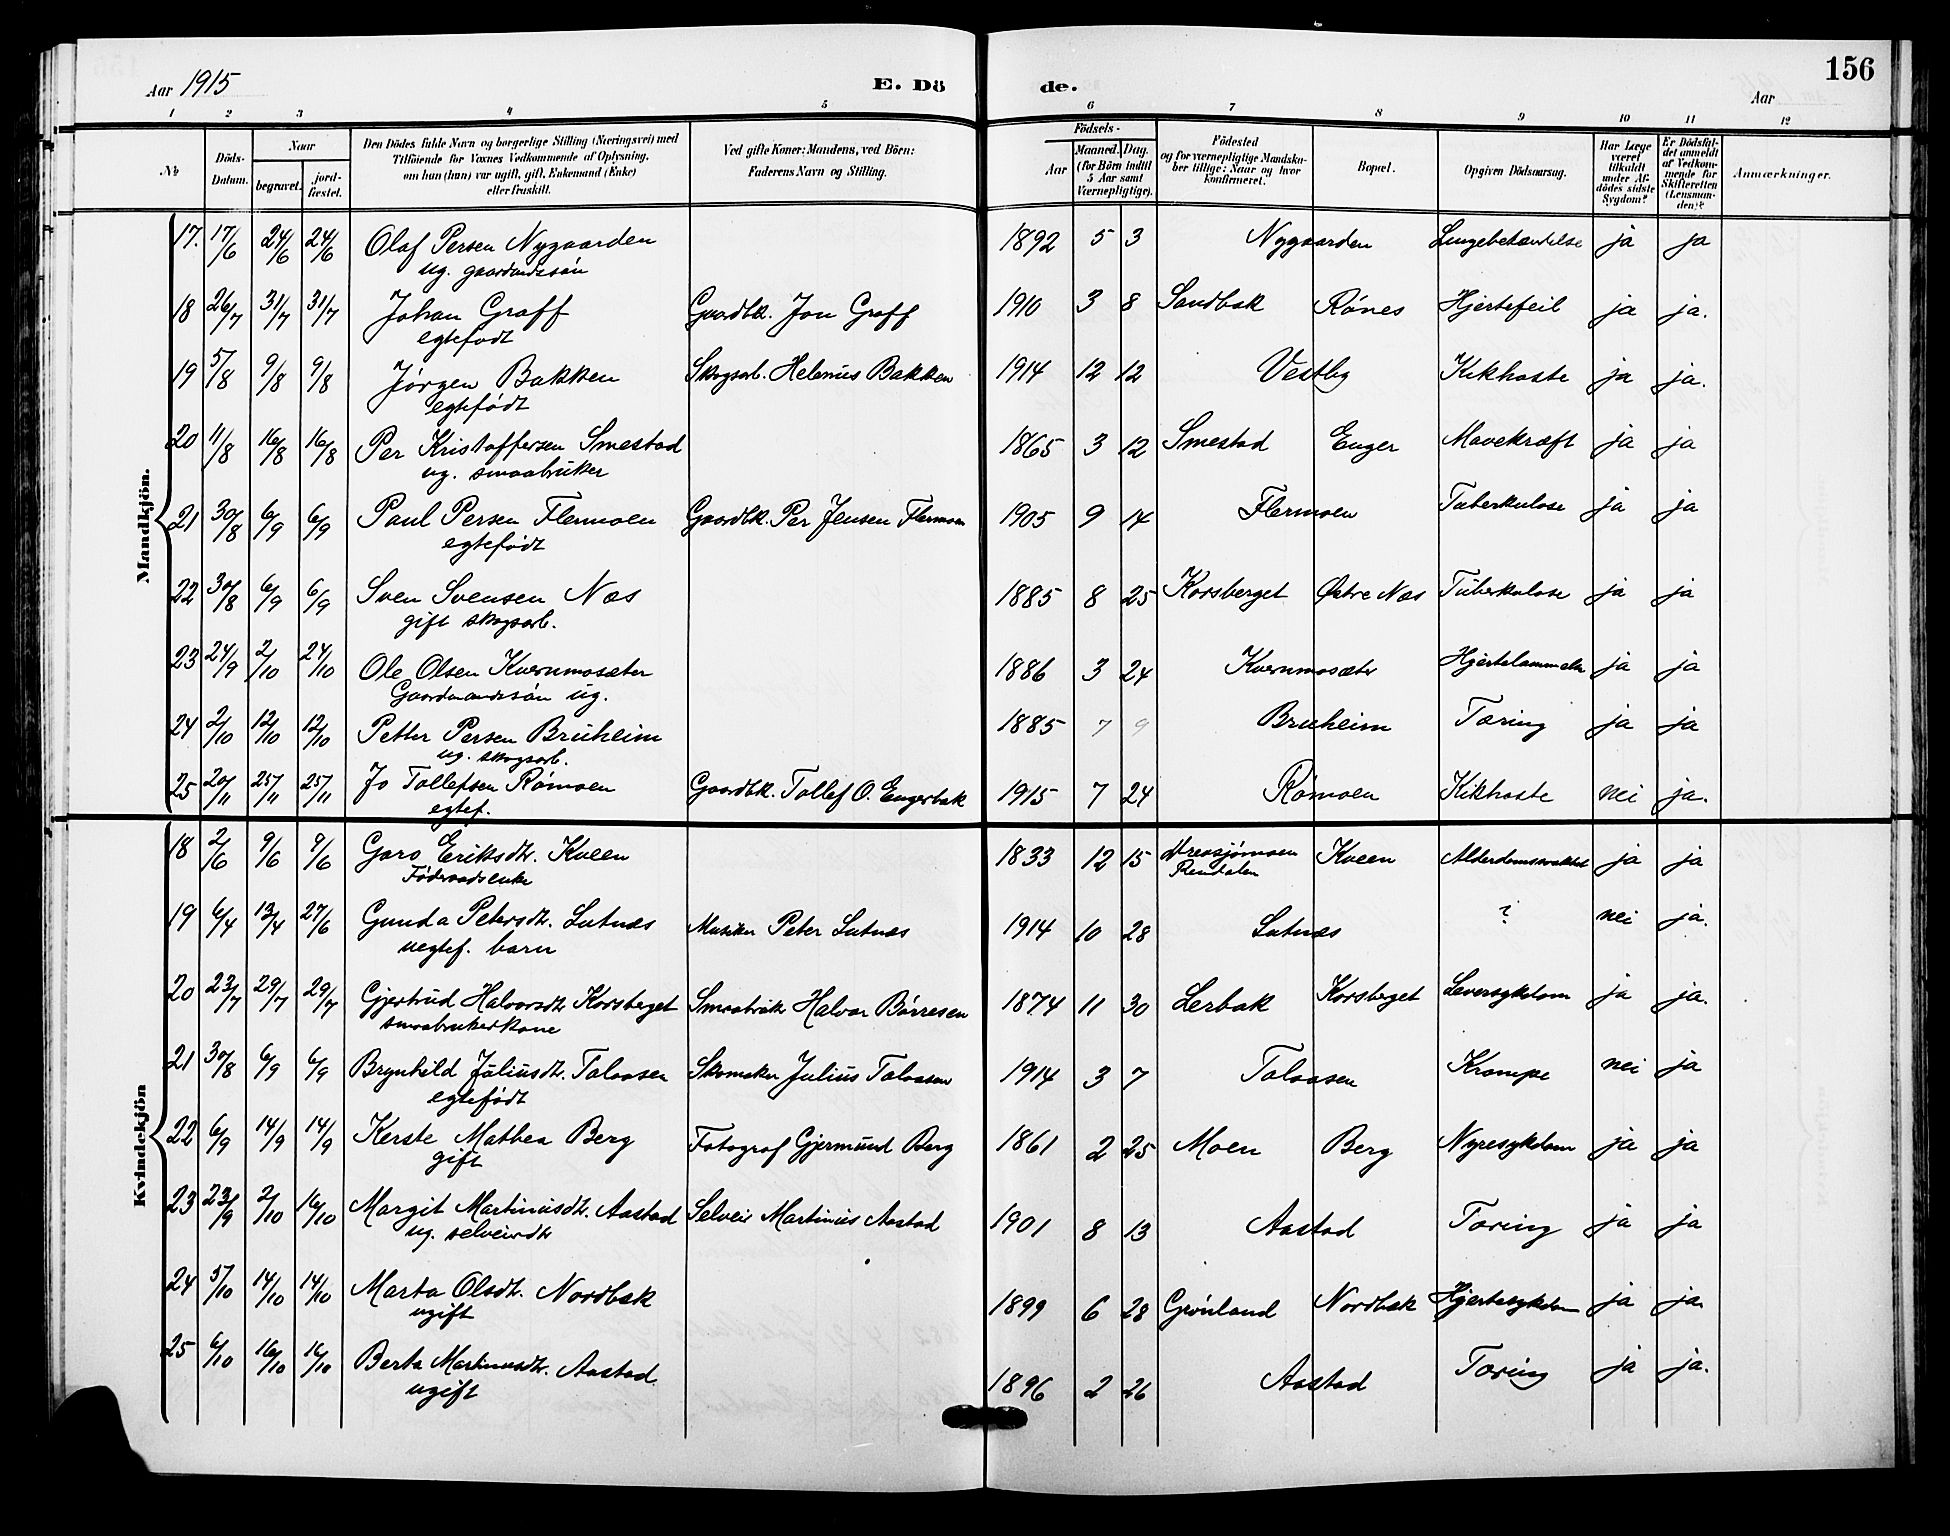 Aar 1915 E. Dö de. Aar 156
1 2 3 4 5 6 7 8 9 10 11 12
№ Döds-Datum. Naar begravet. jord-fæstet. Den Dödes fulde Navn og borgerlige Stilling (Næringsvei) med Tilföiende for Voxnes Vedkommende af Oplysning, om han (hun) var ugift, gift, Enkemand (Enke) eller fraskilt. Ved gifte Koner: Mandens, ved Börn: Faderens Navn og Stilling. Födsels- Aar Maaned. Dag. (for Börn indtil 5 Aar samt Værnepligtige). Födested og for værnepligtige Mandskaber tillige: Naar og hvor konfirmeret. Bopæl. Opgiven Dödsaarsag. Har Læge været tilkaldt under Afdödes sidste Sygdom? Er Dödsfaldet anmeldt af Vedkommende for Skifteretten (Lensmanden)? Anmærkninger.
Mandkjön.
17. 17/6 24/6 24/6 Olaf Persen Nygaarden 1892 5 3 Nygaarden Lungebetændelse ja ja
ug. gaardmandssön
18 26/7 31/7 31/7 Johan Graff Gaardbk. Jon Graff 1910 3 8 Sandbak Rönes Hjertefeil ja ja.
egtefødt
19 5/8 9/8 9/8 Jørgen Bakken Skogsarb. Helenius Bakken 1914 12 12 Vestby Kikhoste ja ja.
egtefødt
20 11/8 16/8 16/8 Per Kristoffersen Smestad 1865 3 12 Smestad Enger Mavekræft ja ja
ug. smaabruker
21 30/8 6/9 6/9 Paul Persen Flermoen Gaardbk. Per Jensen Flermoen 1905 9 14 Flermoen Tuberkulose ja ja
egtefødt
22 30/8 6/9 6/9 Sven Svensen Næs 1885 8 25 Korsberget Østre Næs Tuberkulose ja ja
gift skogsarb.
23 24/9 2/10 24/10 Ole Olsen Kvernmosæter 1886 3 24 Kvernmosæter Hjertelammelse ja ja
Gaardmandssön ug.
24 2/10 12/10 12/10 Petter Persen Bruheim 1885 7 9 Bruheim Tæring ja ja
ug. skogsarb.
25 20/11 25/11 25/11 Jo Tollefsen Römoen Gaardbk. Tollef O. Engerbak 1915 7 24 Römoen Kikhoste nei ja.
egtef.
Kvindekjön
18 2/6 9/6 9/6 Garo Eriksdtr. Kveen 1833 12 15 Kveen Alderdomssvakhet ja ja
Föderaadsenke Rendalen
19 6/4 13/4 27/6 Gunda Petersdtr. Lutnæs Musiker Peter Lutnæs 1914 10 28 Lutnæs ? nei ja.
uegtef. barn
20 23/7 29/7 29/7 Gjertrud Halvorsdtr. Korsberget Smaabruk Halvor Børresen 1874 11 30 Lerbak Korsberget Leversykdom ja ja.
smaabrukerkone
21 30/8 6/9 6/9 Brynhild Juliusdtr. Talaasen Skomaker Julius Talaasen 1914 3 7 Talaasen Krampe nei ja
egtefødt
22 6/9 14/9 14/9 Kerste Mathea Berg Fotograf Gjermund Berg 1861 2 25 Moen Berg Nyresykdom ja ja
gift
23 23/9 2/10 16/10 Margit Martinusdtr. Aastad Selveier Martinus Aastad 1901 8 13 Aastad Tæring ja ja
ug. selveierdtr
24 5/10 14/10 14/10 Marta Olsdtr. Nordbak 1899 6 28 Grönland Nordbak Hjertesykdom ja ja.
ugift
25 6/10 16/10 16/10 Berta Martinusdtr. Aastad. 1896 2 26 Aastad Tæring ja ja.
ugift